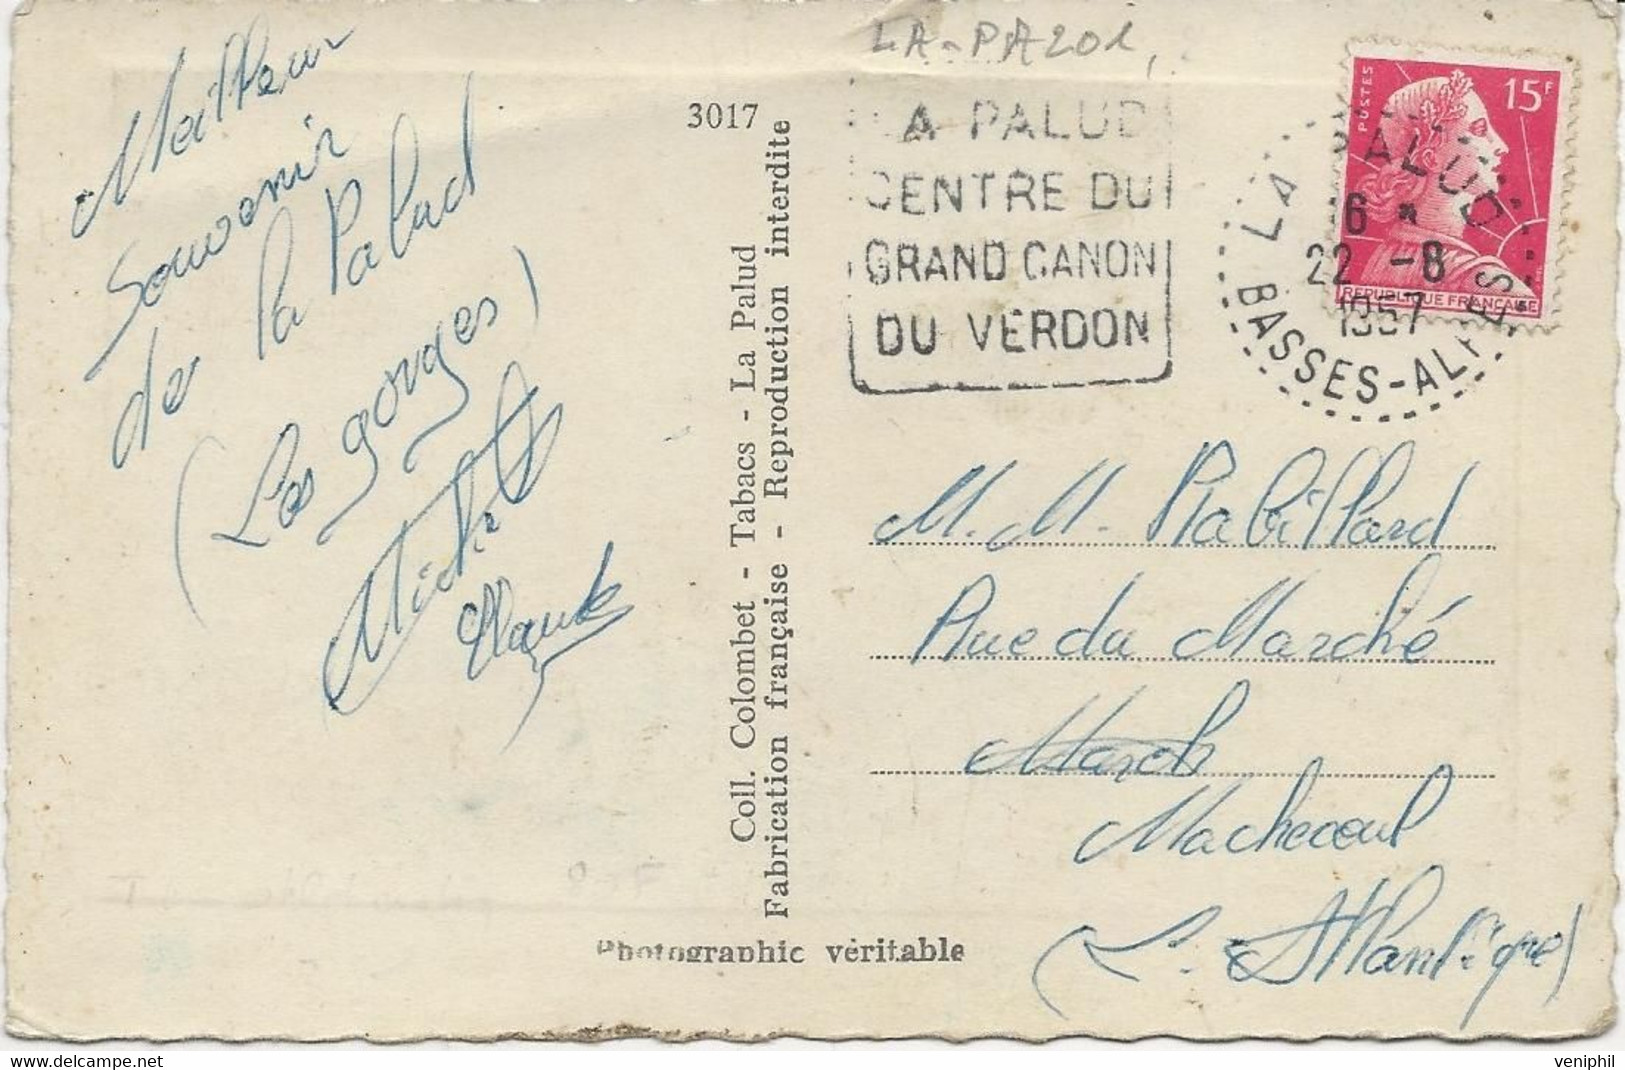 Meilleur
Souvenir
de la Palud
(Les gorges)
Michel
3017
Coll. Colombet - Tabacs - La Palud
Fabrication française - Reproduction interdite
Photographie véritable
LA-PA201
A PALUD
CENTRE DU
GRAND CANON
DU VERDON
LA PALUD
6
22 -8
1957
BASSES-ALPES
POSTES
15F
REPUBLIQUE FRANÇAISE
M. M. Rabillard
Rue du Marché
March
Machecoul
(L. Atlantique)
veniphil